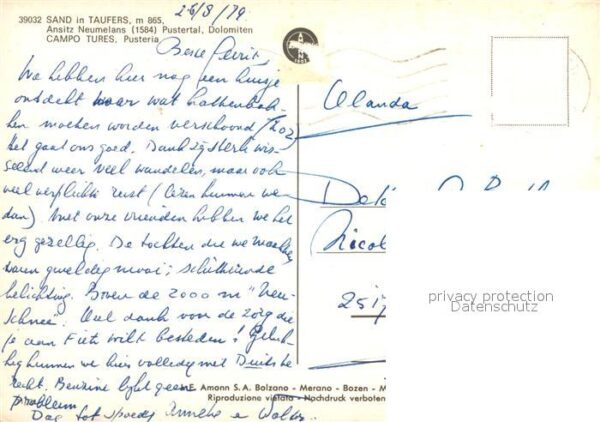 26/8/79
39032 SAND in TAUFERS, m 865,
Ansitz Neumelans (1584) Pustertal, Dolomiten
CAMPO TURES, Pusteria
Beste Gerrit,
We hebben hier nog geen huisje
ontdekt waar wat kattenbak-
ken moeten worden verschoond
Het gaat ons goed. Dank zij sterk wis-
selend weer veel wandelen, maar ook
veel verplichte rust (lezen kunnen we
dan). Met onze vrienden hebben we het
erg gezellig. De tochten die we maakten
waren geweldig mooi; schitterende
belichting. Boven de 2000 m "Neu-
schnee". Veel dank voor de zorg die
je aan Fiets wilt besteden! Geluk-
kig kunnen we hier volledig met Duits te-
recht. Benzine lijkt geen
probleem.
Dag tot spoedig Anneke e
Olanda
Nicol
privacy protection
Datenschutz
Amann S.A. Bolzano - Merano - Bozen - M
Riproduzione vietata - Nachdruck verboten